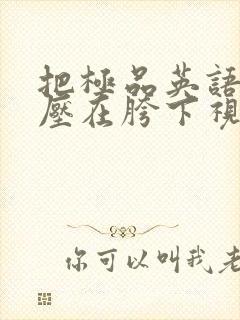 把極品英語
壓在胯下視
你可以叫我老